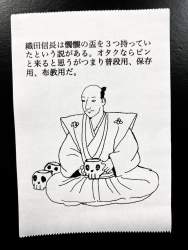 織田信長は髑髏の盃を３つ持ってい
たという説がある。オタクならピン
と来ると思うがつまり普段用、保存
用、布教用だ。